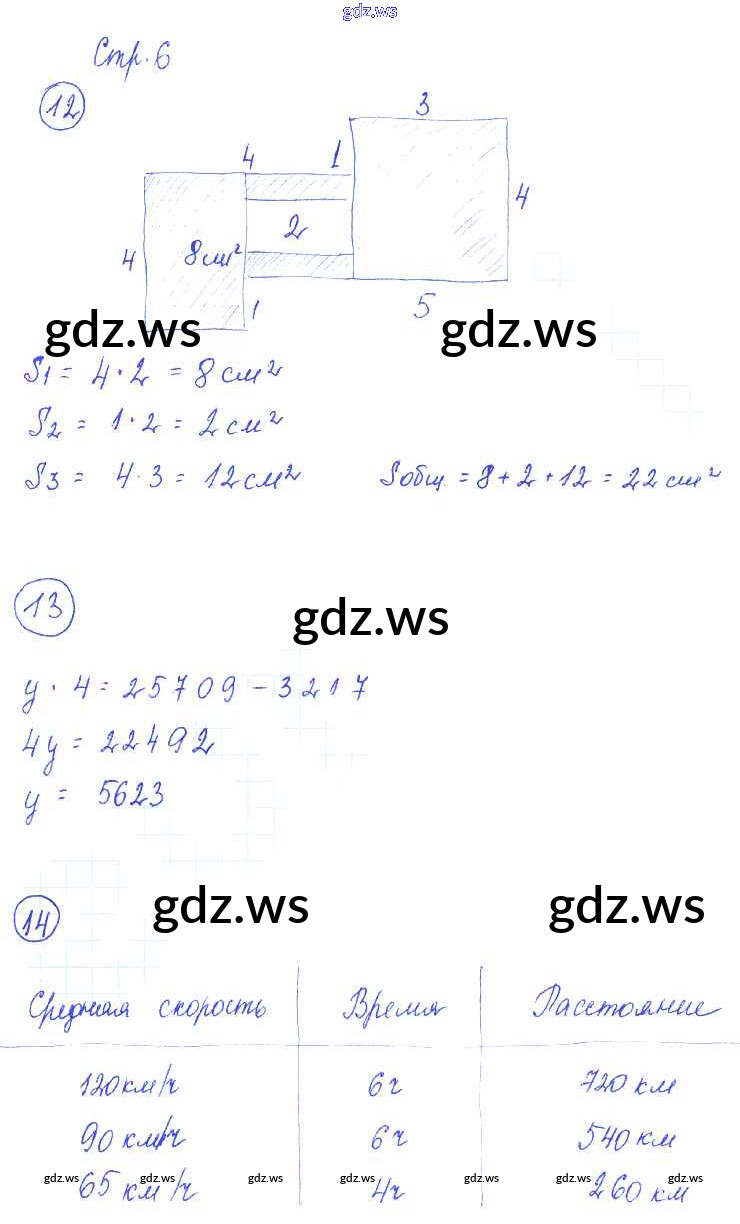 gdz.ws
Стр. 6
12
3
4 1
4
2
4 8 см²
1
5
gdz.ws gdz.ws
S1 = 4 · 2 = 8 см²
S2 = 1 · 2 = 2 см²
S3 = 4 · 3 = 12 см² Sобщ. = 8 + 2 + 12 = 22 см²
13
gdz.ws
y · 4 = 25709 - 3217
4y = 22492
y = 5623
gdz.ws gdz.ws
14
Средняя скорость Время Расстояние
120 км/ч 6 ч 720 км
90 км/ч 6 ч 540 км
gdz.ws gdz.ws gdz.ws gdz.ws gdz.ws gdz.ws gdz.ws
65 км/ч 4 ч 260 км